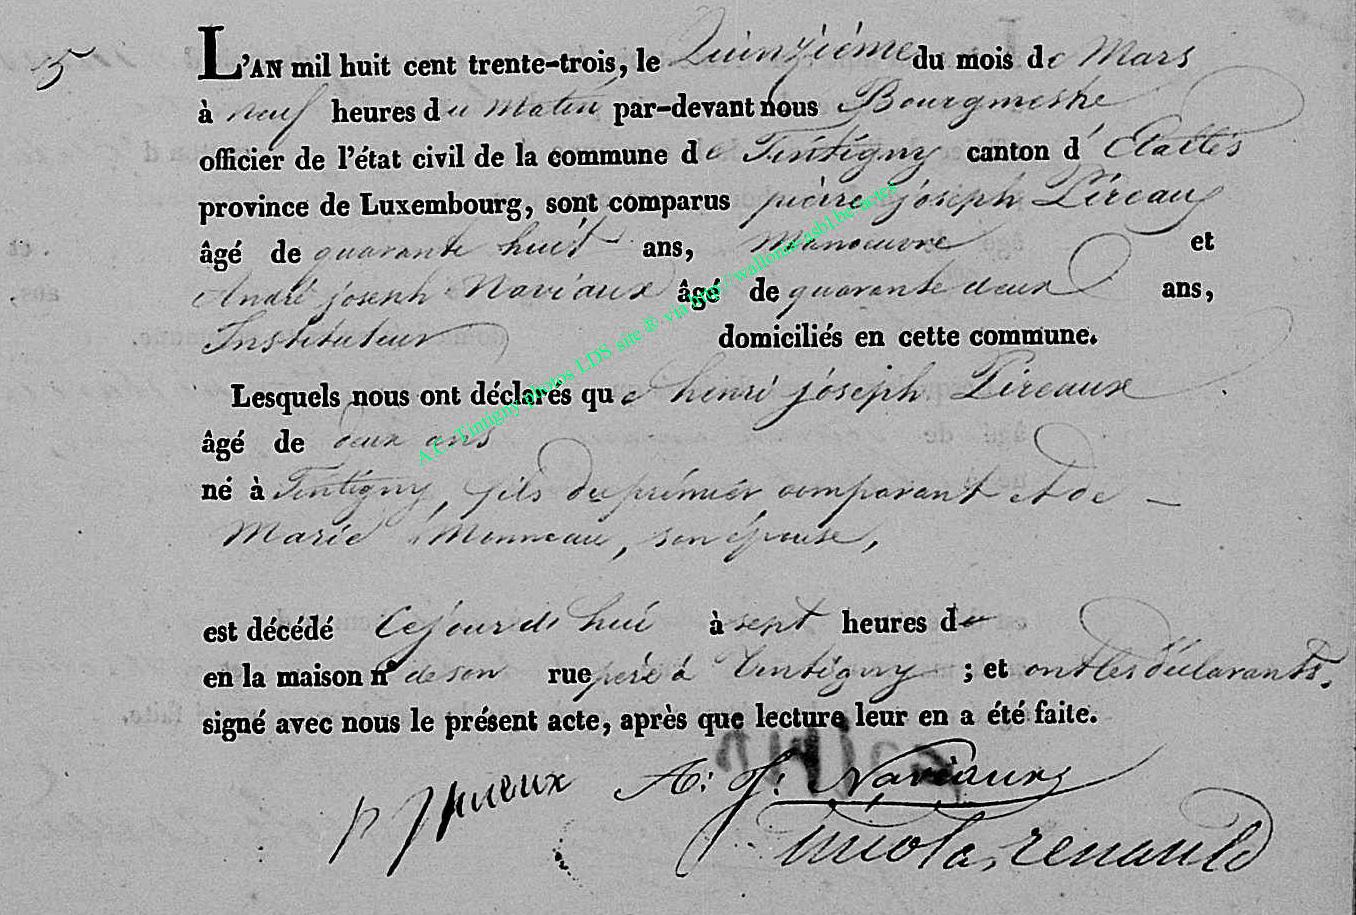 5
L'AN mil huit cent trente-trois, le Quinziéme du mois de Mars
à neuf heures du Matin par-devant nous Bourgmestre
officier de l'état civil de la commune de Tintigny canton d'Etalles
province de Luxembourg, sont comparus pierre joseph Pireaux
âgé de quarante huit ans, Manoeuvre et
André joseph Naviaux âgé de quarante deux ans,
Instituteur domiciliés en cette commune.
Lesquels nous ont déclarés que henri joseph Pireaux
âgé de deux ans
né à Tintigny, fils du prémier comparant et de
Marie Monneau, son épouse,
est décédé Cejourd'hui à sept heures du
en la maison n° de son rue pére à Tintigny ; et ont les déclarants.
signé avec nous le présent acte, après que lecture leur en a été faite.
p J pireaux A: J: Naviaux
nicolas renauld
A.C. Tintigny photos LDS site & via http://wallonia-asbl.be/actes